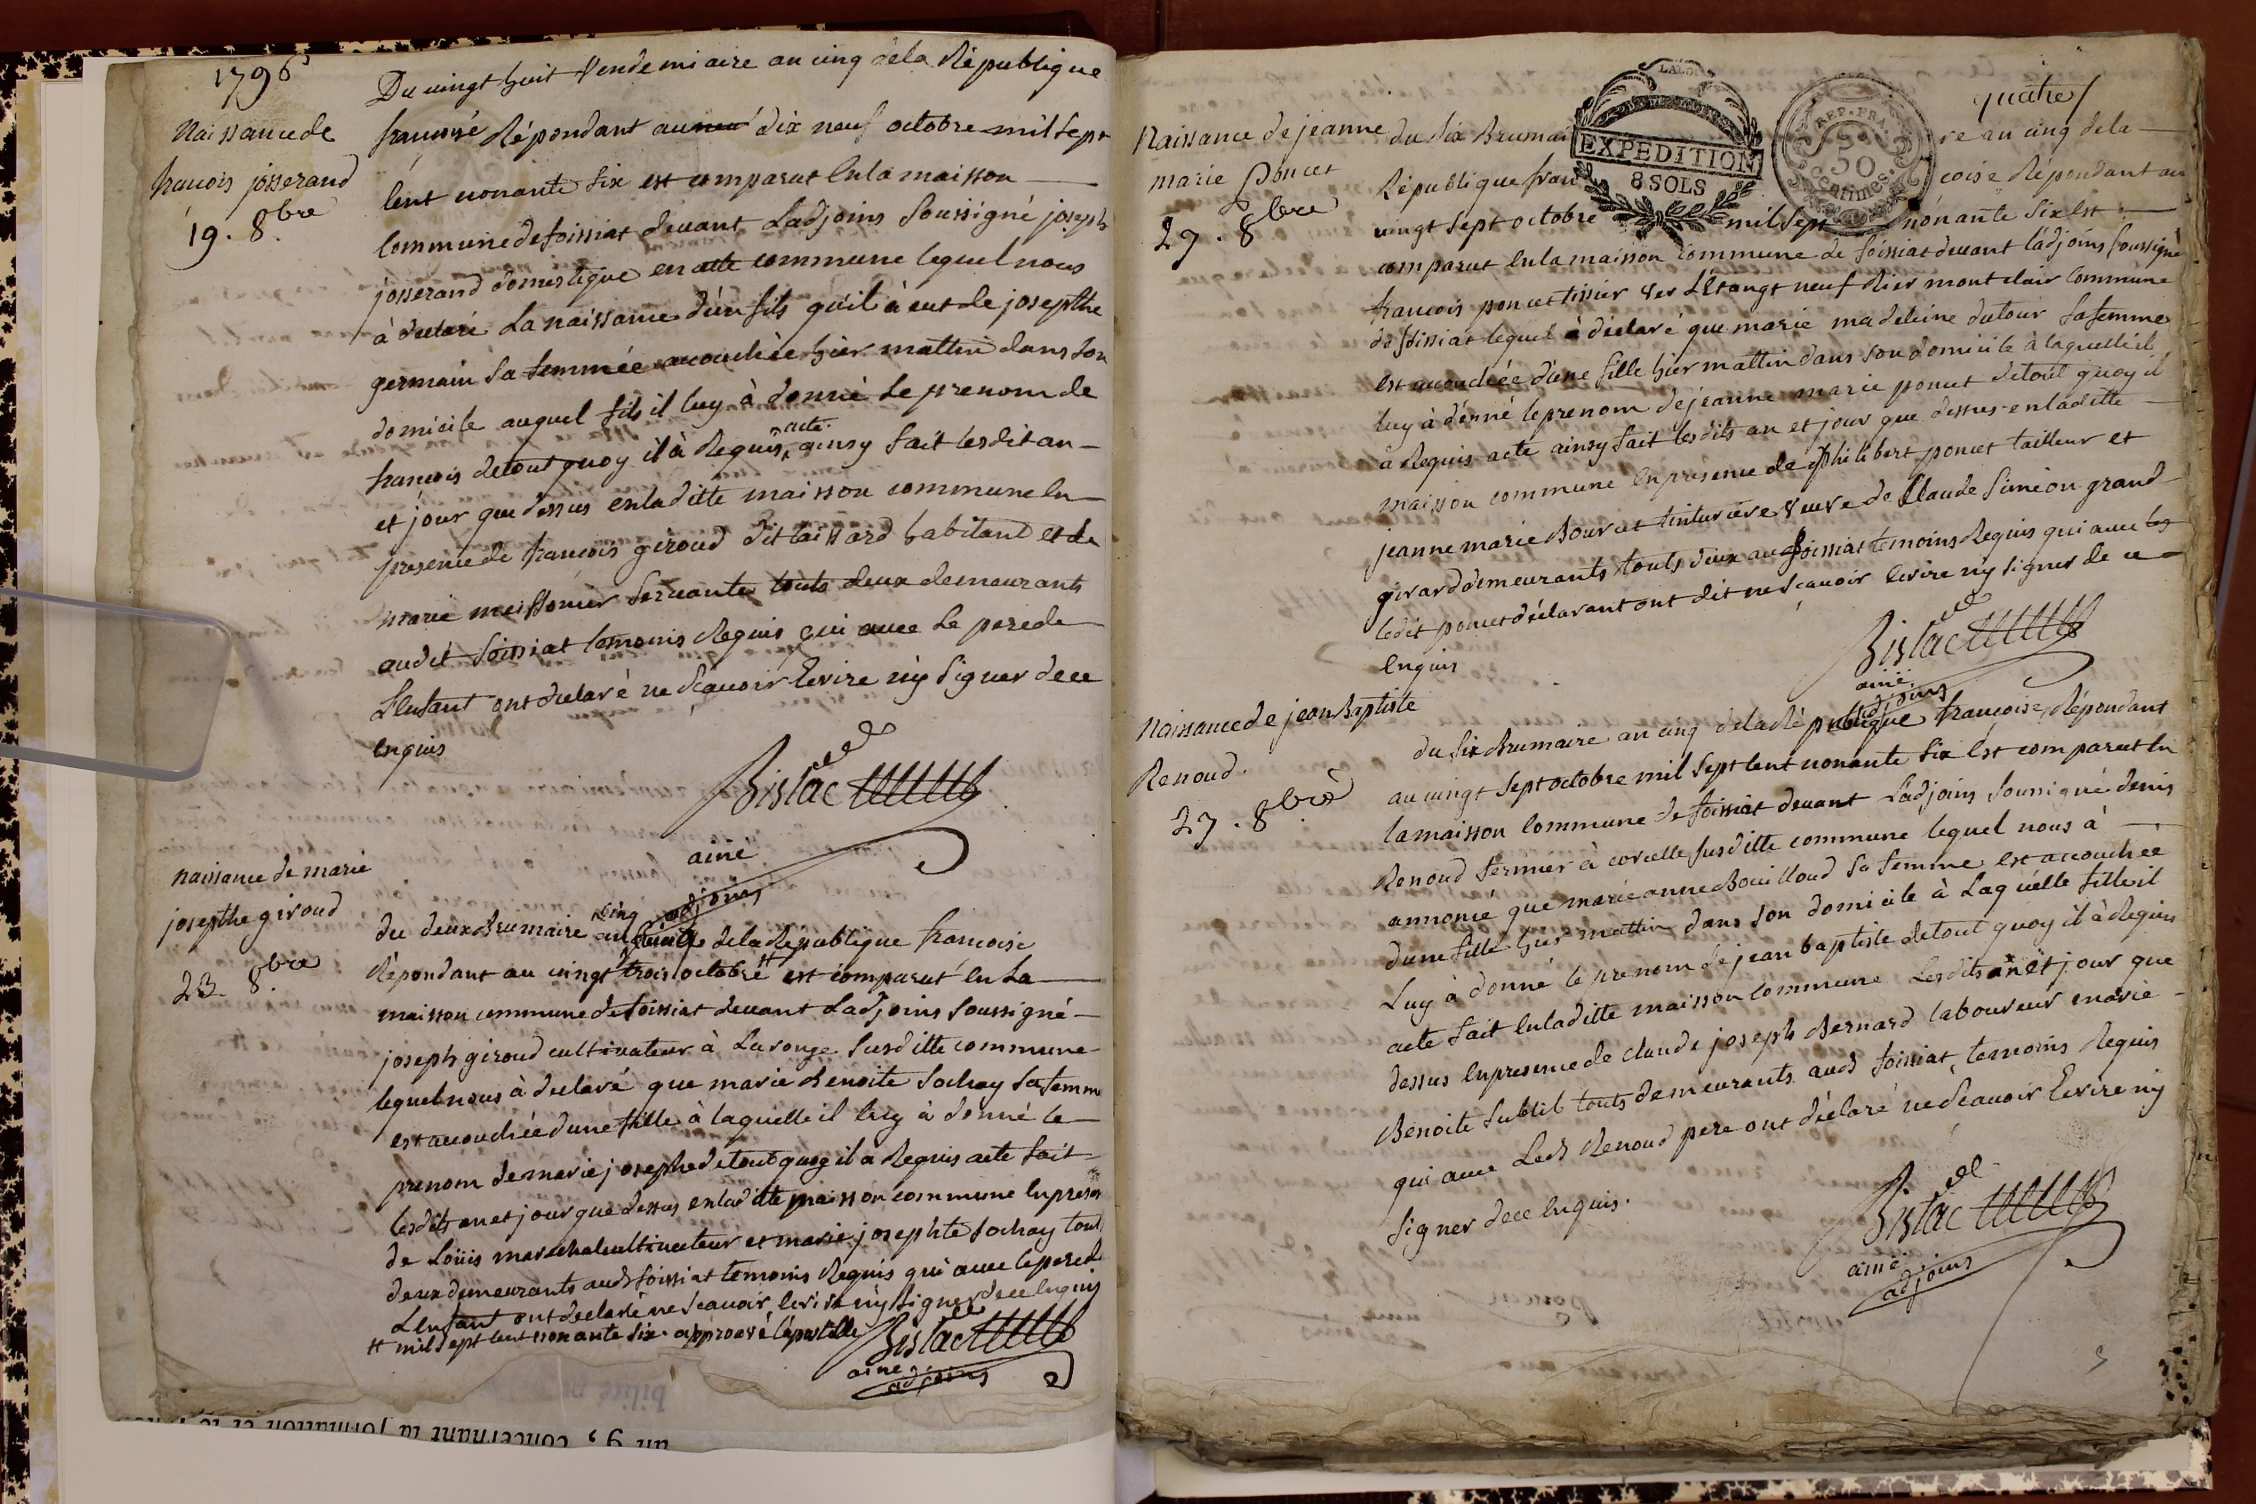 1796
Naissance de
francois josserand
19. 8bre
Du vingt huit Vendemiaire an cinq dela Republique
francoise Répondant au dix neuf octobre mil sept
Cent nonante Six est comparut En la maisson
Commune de foissiat devant Ladjoins Soussigné joseph
josserand domestique en cette commune lequel nous
à declaré La naissance d'un fils qu'il à eut de josepthe
germain Sa femmée accouchée hier mattin dans Son
domicile auquel fils il luy à donné Le prenom de
francois detout quoy il à Requis acte. ainsy fait lesdit an
et jour que dessus enladitte maisson commune En
presence de francois giroud dit taissard habitant et de
marie meissonier Servante touts deux demeurants
audit foissiat temoins Requis qui avec Le perede
L'Enfant ont declaré ne Scavoir Ecrire ny Signer dece
enquis
Bislac
ainé
adjoins
naissance de marie
josepthe giroud
23. 8bre
du deux Brumaire an cinq dela République francoise
Répondant au vingt trois octobre # est comparut En La
maisson commune de foissiat devant Ladjoins Soussigné
joseph giroud cultivateur à Laronge Susditte commune
lequel nous à declaré que marie Benoite Sochay Sa femme
est accouchée dune fille à laquelle il luy à donné le
prenom de marie josephe detout quoy il a Requis acte fait
lesdits an et jour que dessus enladitte maisson commune En presen
de Loüis marechal cultivateur et marie josephte Sochay tout
deux demeurants audt foissiat temoins Requis qui avec le perede
L'enfant ont declaré ne Scavoir Ecrire ny Signer dece Enquis
# mil Sept cent nonante Six. approuvé l'apostille
Bislac
ainé
adjoins
quatre
LA LOI
EXPEDITION
8 SOLS
REP. FRA.
50
centimes.
Naissance de jeanne
marie Poncet
27. 8bre
du Six Brumaire an cinq dela
République francoise Répondant au
vingt Sept octobre mil Sept nonante Six Est
comparut En la maisson Commune de foissiat devant Ladjoins Soussigné
francois poncet tissier Ver L'Etangt neuf Rier mont clair Commune
de foissiat lequel à déclaré que marie madeleine dutour Sa femme
est accouchée d'une fille hier mattin dans Son domicile à laquelle il
luy à donné le prenom de jeanne marie poncet detout quoy il
à Requis acte ainsy fait lesdits an et jour que dessus enladitte
maisson commune En presence de philibert poncet tailleur et
jeanne marie Bourcet tinturiere veuve de Claude Simeon grand
girard demeurants touts deux aud foissiat temoins Requis qui avec
ledit poncet déclarant ont dit ne Scavoir Ecrire ny Signer de ce
Enquis
Bislac
ainé
adjoins
Naissance de jean Baptiste
Renoud.
27. 8bre
du Six Brumaire an cinq dela République francoise, Répondant
au vingt Sept octobre mil Sept Cent nonante Six Est comparut En
la maisson Commune de foissiat devant Ladjoins Soussigné denis
Renoud fermier à corcelle Susditte commune lequel nous à
annoncé que marie anne Bouilloud Sa femme est accouchée
dune fille hier mattin dans Son domicile à Laquélle fille il
Luy à donné le prenom de jean baptiste detout quoy il à Requis
acte fait Enladitte maisson commune Lesdits an et jour que
dessus Enpresence de claude joseph Bernard laboureur marie
Benoite Subtil touts demeurants audt foissiat, temoins Requis
qui avec Ledt Renoud pere ont déclaré ne Scavoir Ecrire ny
Signer dece Enquis.
Bislac
ainé
adjoins